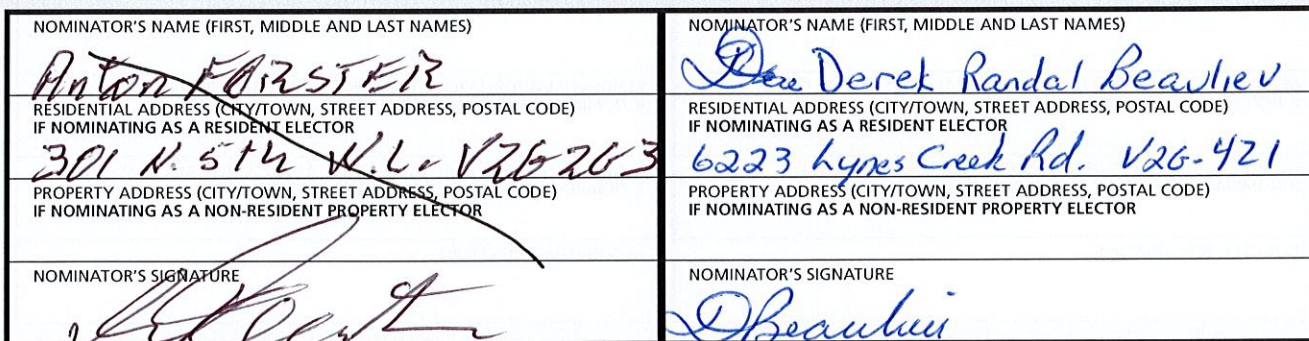 NOMINATOR'S NAME (FIRST, MIDDLE AND LAST NAMES)
Anton FORSTER
RESIDENTIAL ADDRESS (CITY/TOWN, STREET ADDRESS, POSTAL CODE)
IF NOMINATING AS A RESIDENT ELECTOR
301 N. 5th W.L. V2G2G3
PROPERTY ADDRESS (CITY/TOWN, STREET ADDRESS, POSTAL CODE)
IF NOMINATING AS A NON-RESIDENT PROPERTY ELECTOR
NOMINATOR'S SIGNATURE
NOMINATOR'S NAME (FIRST, MIDDLE AND LAST NAMES)
Derek Randal Beaulieu
RESIDENTIAL ADDRESS (CITY/TOWN, STREET ADDRESS, POSTAL CODE)
IF NOMINATING AS A RESIDENT ELECTOR
6223 Lynes Creek Rd. V2G-4Z1
PROPERTY ADDRESS (CITY/TOWN, STREET ADDRESS, POSTAL CODE)
IF NOMINATING AS A NON-RESIDENT PROPERTY ELECTOR
NOMINATOR'S SIGNATURE
DBeaulieu